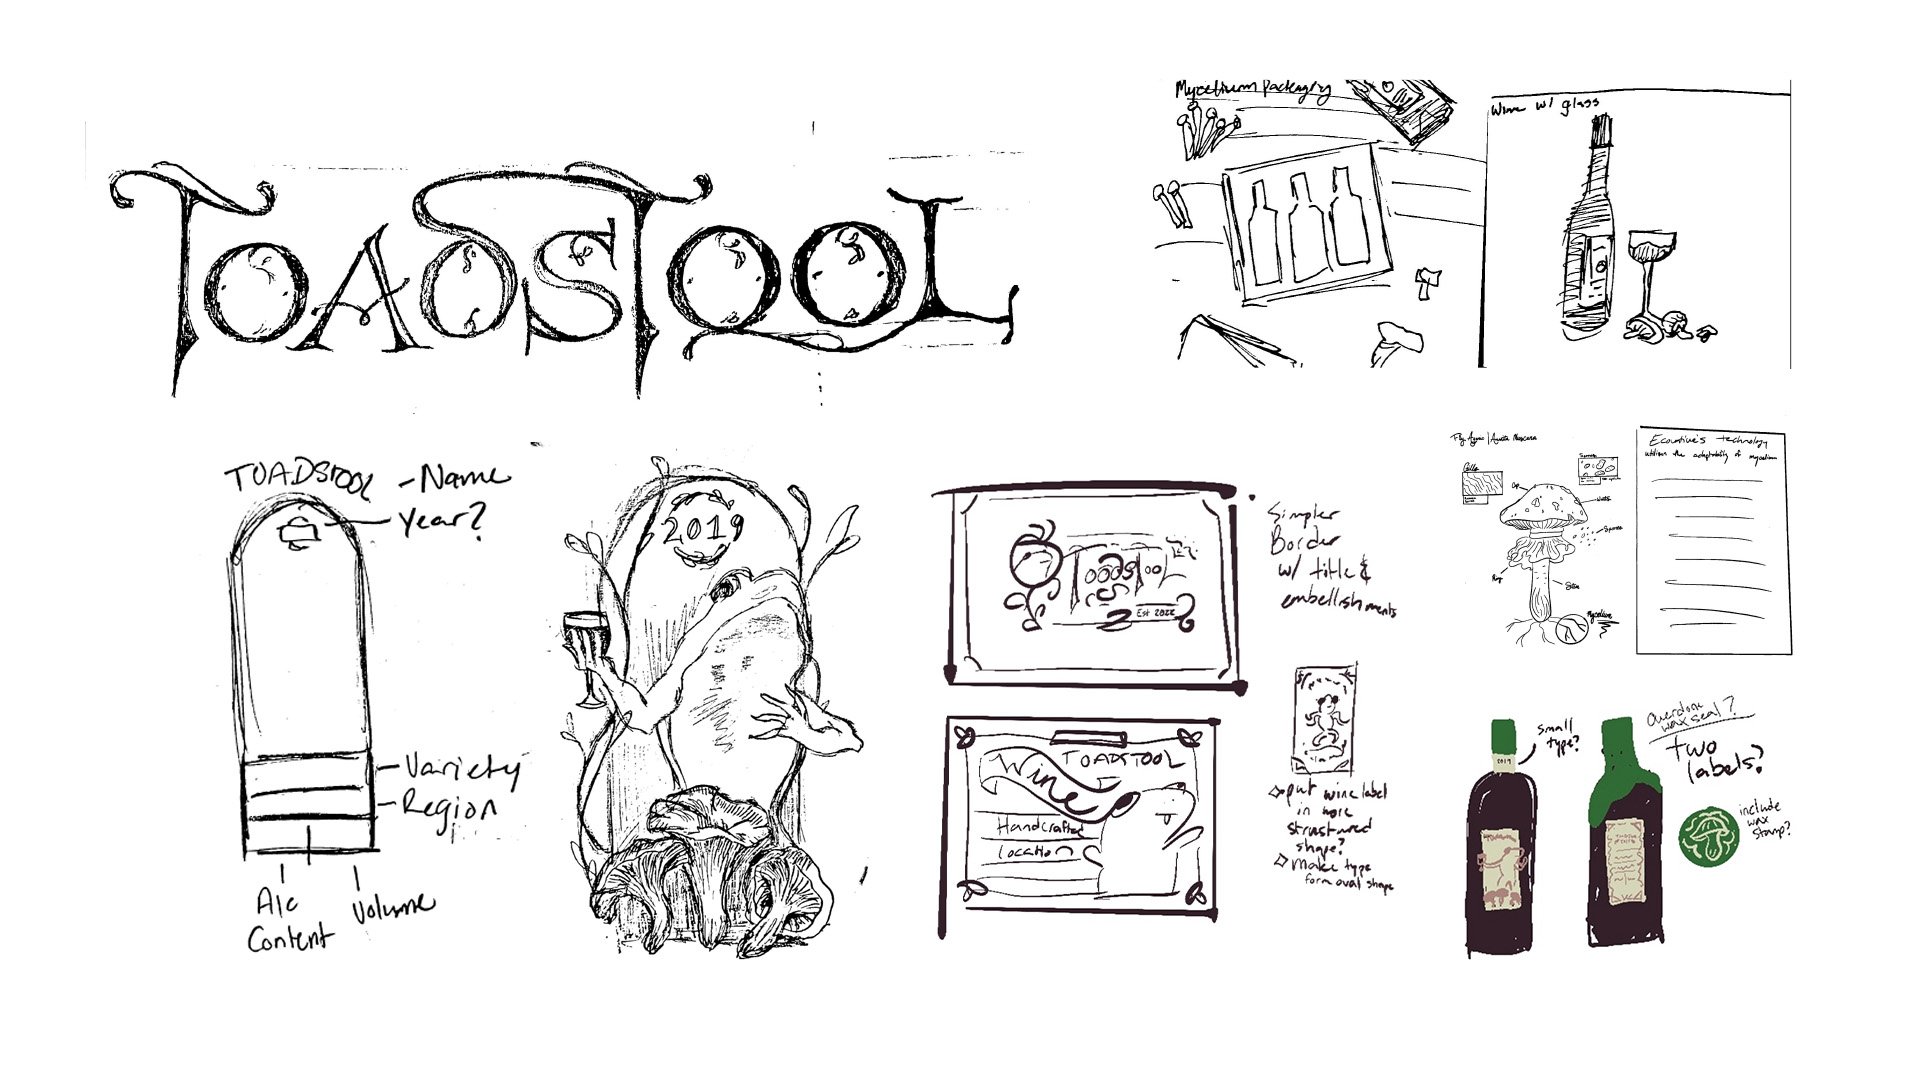 TOADSTOOL
Mycelium Packaging
Wine w/ glass
TOADSTOOL - Name
Year?
Variety
Region
Alc
Content
Volume
2019
TOADSTOOL
Est 2022
Simpler
Border
w/ title &
embellishments
TOADSTOOL
Wine
Handcrafted
Location
put wine label
in more
structured
shape?
make type
form oval shape
Cells
Spores
Cap
Warts
Spores
Ring
Mycelium
technology
utilizes the adaptability of mycelium
small
type?
2019
Overdone
wax seal?
two
labels?
include
wax
stamp?